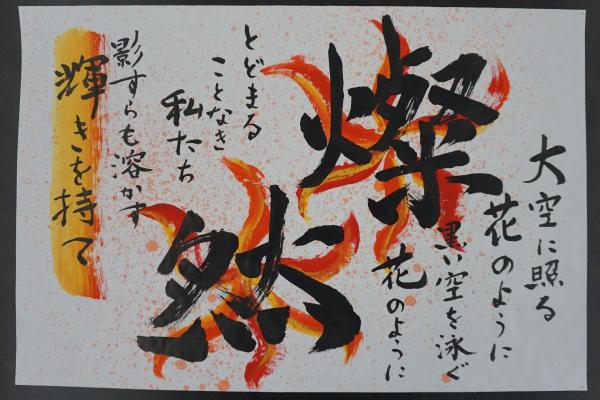 大空に照る
花のように
黒い空を泳ぐ
花のように
燦
然
とどまる
ことなき
私たち
影すらも溶かす
輝きを持て